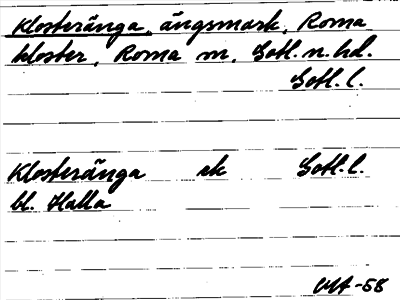 Klosteränga, ängsmark, Roma
kloster, Roma sn, Gotl. n. hd.
Gotl. l.
Klosteränga ek Gotl. l.
bl. Halla
-58